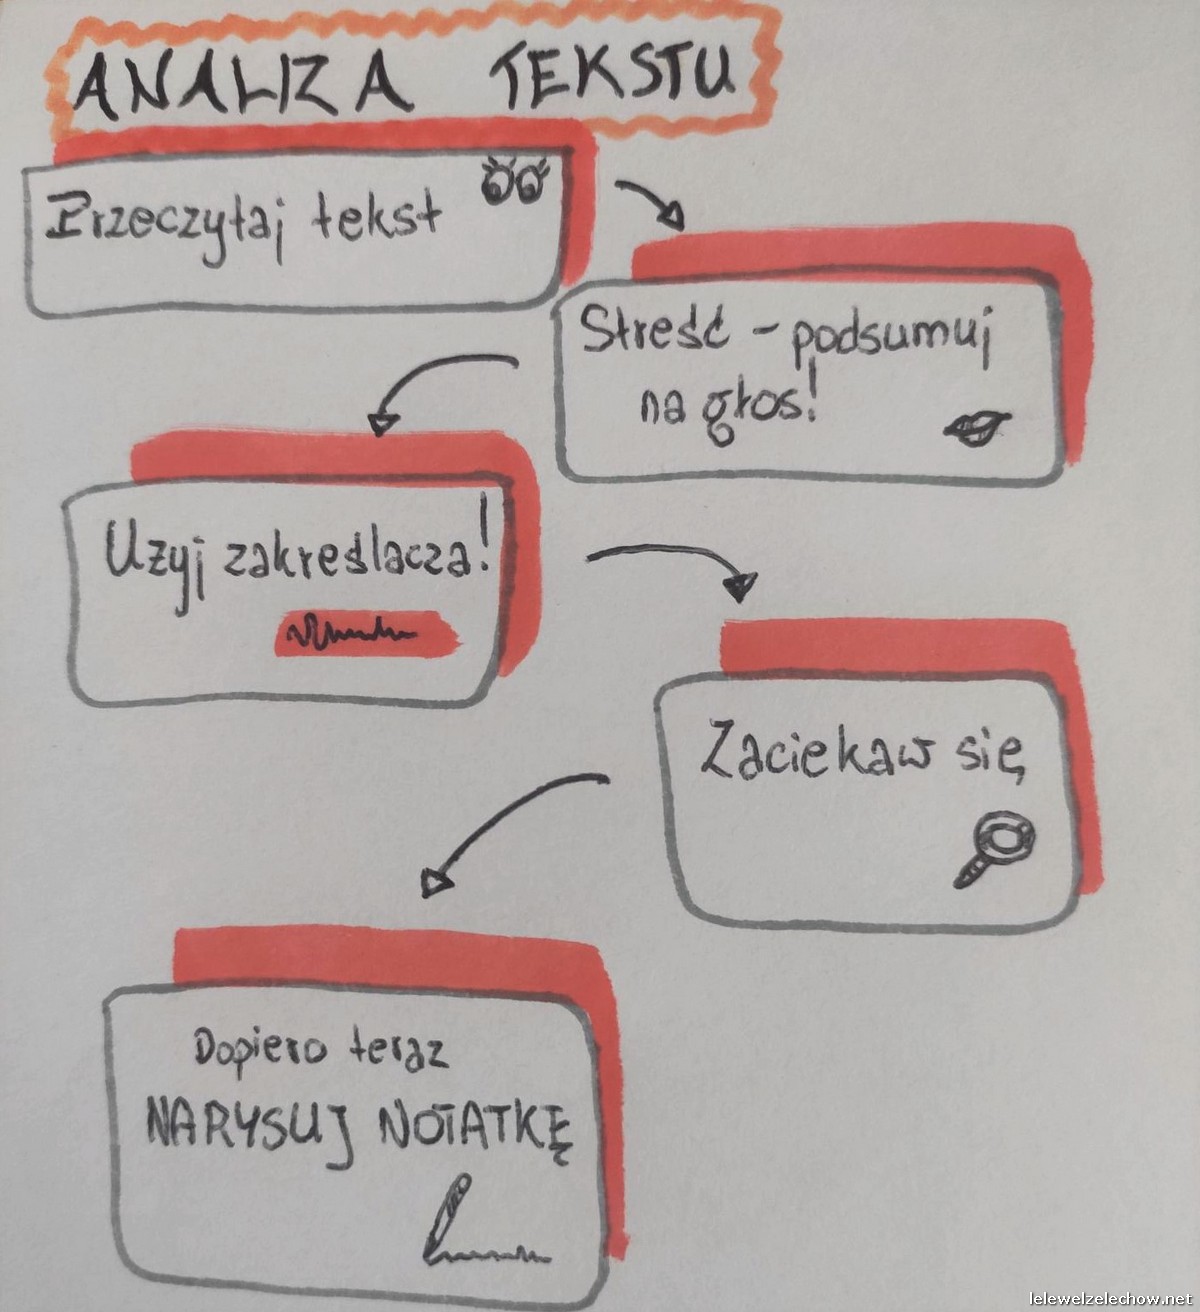 ANALIZA TEKSTU
Przeczytaj tekst
Streść - podsumuj
na głos!
Użyj zakreślacza!
Zaciekaw się
Dopiero teraz
NARYSUJ NOTATKĘ
lelewelzelechow.net